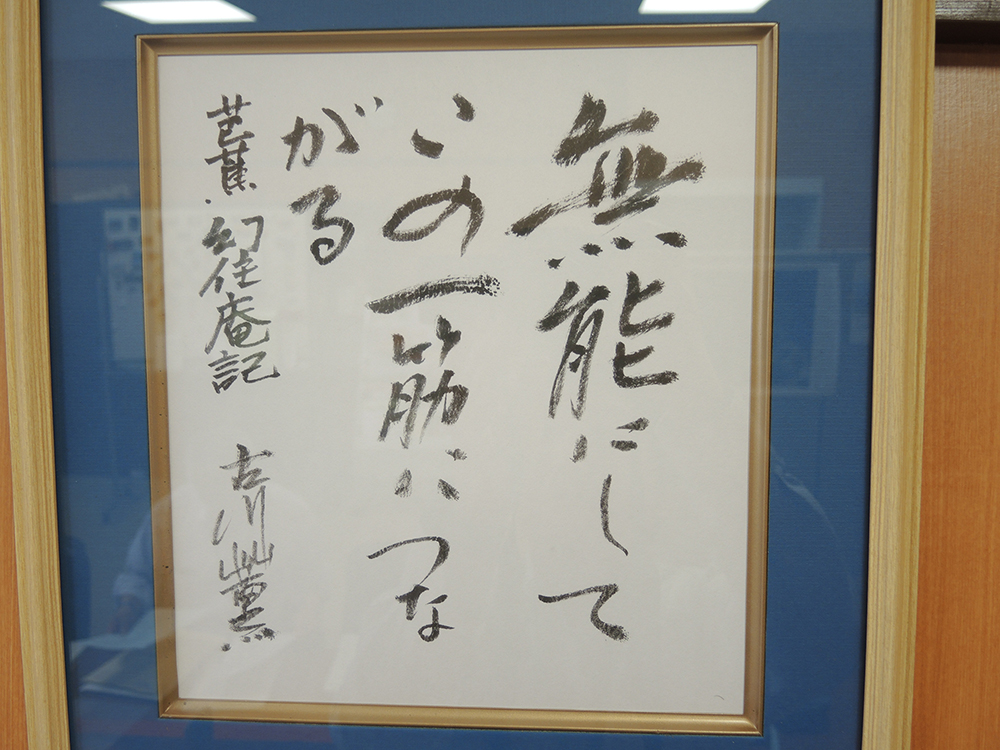 無能にして
この一筋につな
がる
芭蕉・幻住庵記 古川薫